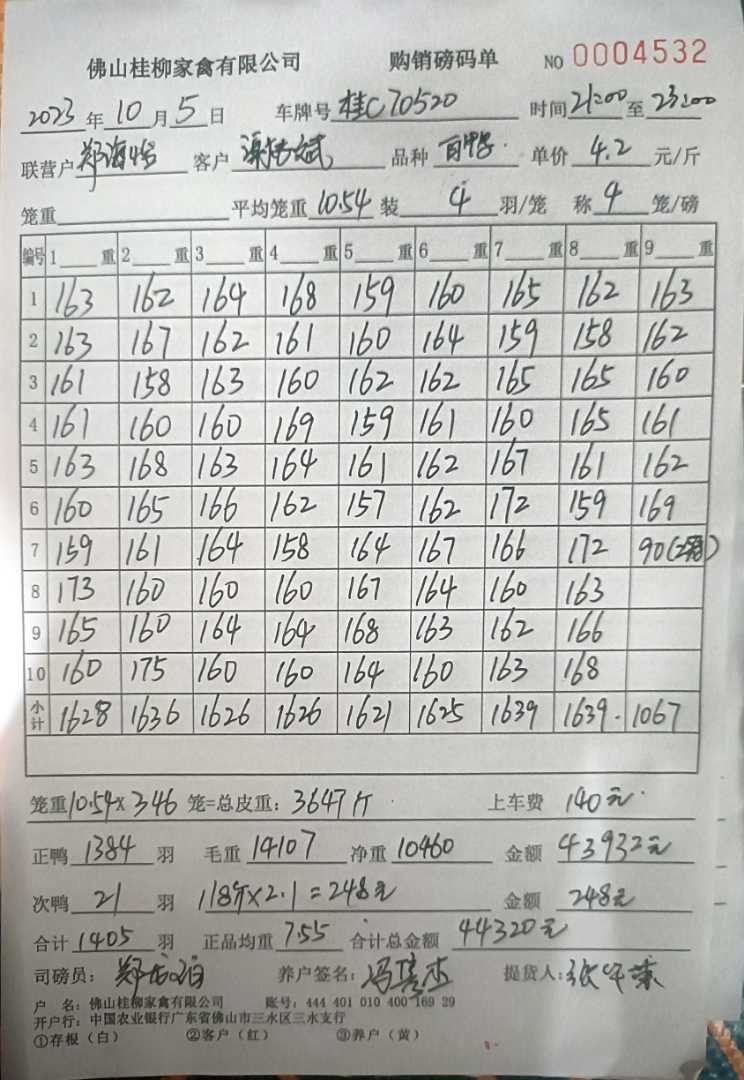 佛山桂柳家禽有限公司 购销磅码单 NO 0004532
2023年10月5日 车牌号桂C70520 时间21:00至23:00
联营户郑海 客户 品种 单价4.2元/斤
笼重 平均笼重10.54装4羽/笼 称4笼/磅
编号 1 重 2 重 3 重 4 重 5 重 6 重 7 重 8 重 9 重
1 163 162 164 168 159 160 165 162 163
2 163 167 162 161 160 164 159 158 162
3 161 158 163 160 162 162 165 165 160
4 161 160 160 169 159 161 160 165 161
5 163 168 163 164 161 162 167 161 162
6 160 165 166 162 157 162 172 159 169
7 159 161 164 158 164 167 166 172 90(2笼)
8 173 160 160 160 167 164 160 163
9 165 160 164 164 168 163 162 166
10 160 175 160 160 164 160 163 168
小计 1628 1636 1626 1626 1621 1625 1639 1639 1067
笼重10.54×346笼=总皮重:3647斤 上车费 140元
正鸭1384羽 毛重14107 净重10460 金额43932元
次鸭21羽 118斤×2.1=248元 金额248元
合计1405羽 正品均重7.55 合计总金额44320元
司磅员: 养户签名:冯 提货人:张
户 名:佛山桂柳家禽有限公司 账号:444 401 010 400 169 29
开户行:中国农业银行广东省佛山市三水区三水支行
①存根(白) ②客户(红) ③养户(黄)